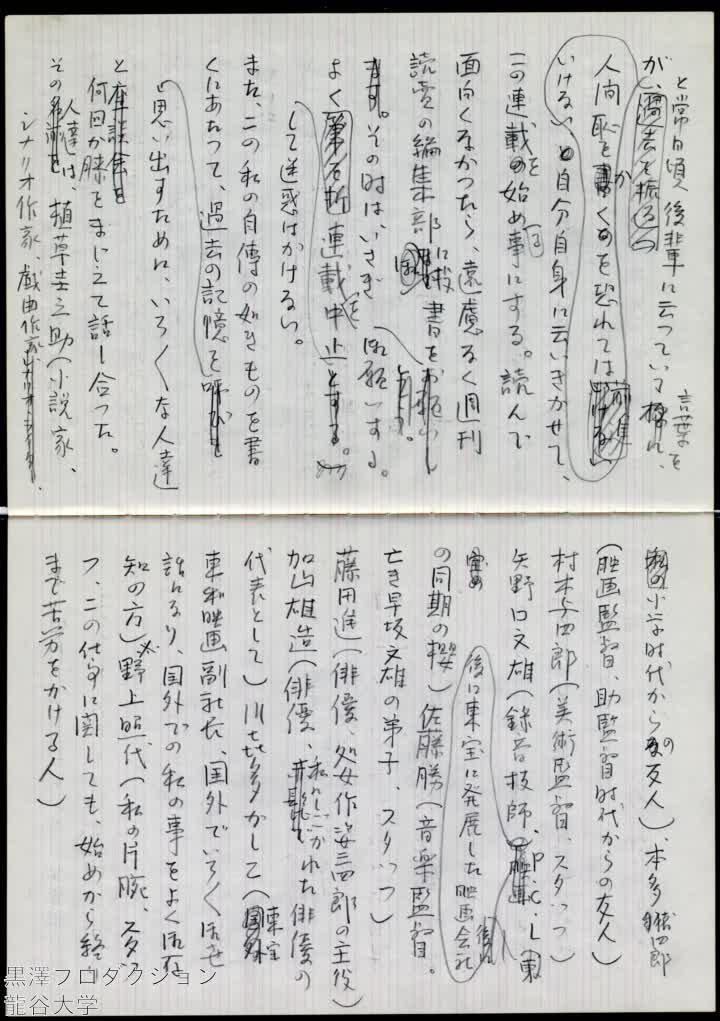 と常日頃後輩に云っている言葉を
が、過去を振る
人間恥を書かくのを恐れては
いけない、と自分自身に云いきかせて、
この連載を始める事にする。読んで
面白くなかったら、遠慮なく週刊
読賣の編集部に 書を
ます。その時は、いさぎ 御願いする。
よく筆を折 連載を中止とする。
して迷惑はかけない。
また、この私の自傳の如きものを書
くにあたって、過去の記憶を呼びを
思い出すために、いろいろな人達
と座談会を
何回か膝をまじえて話し合った。
その人達は、植草圭之助(小説家、
シナリオ作家、戯曲作家シナリオライター、
私の小学時代からの友人)、本多猪四郎
(映画監督、助監督時代からの友人)
村木与四郎(美術監督、スタッフ)
矢野口文雄(録音技師、P.C.L(東
後に東宝に発展した映画会社
の同期の櫻)佐藤勝(音楽監督。
亡き早坂文雄の弟子、スタッフ)
藤田進(俳優、処女作姿三四郎の主役)
加山雄造(俳優、私にしごかれた俳優の
代表として)川喜多かしこ(東宝
東和映画副社長、国外でいろいろ御世
話になり、国外での私の事をよく御存
知の方)野上照代(私の片腕、スタッ
フ、この仕事に関しても、始めから終り
まで苦労をかける人)
黒澤プロダクション
龍谷大学